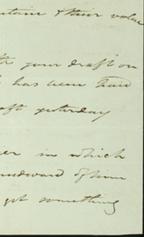 & their value
your draft on
has been paid
yesterday
in which
windward of him
got something